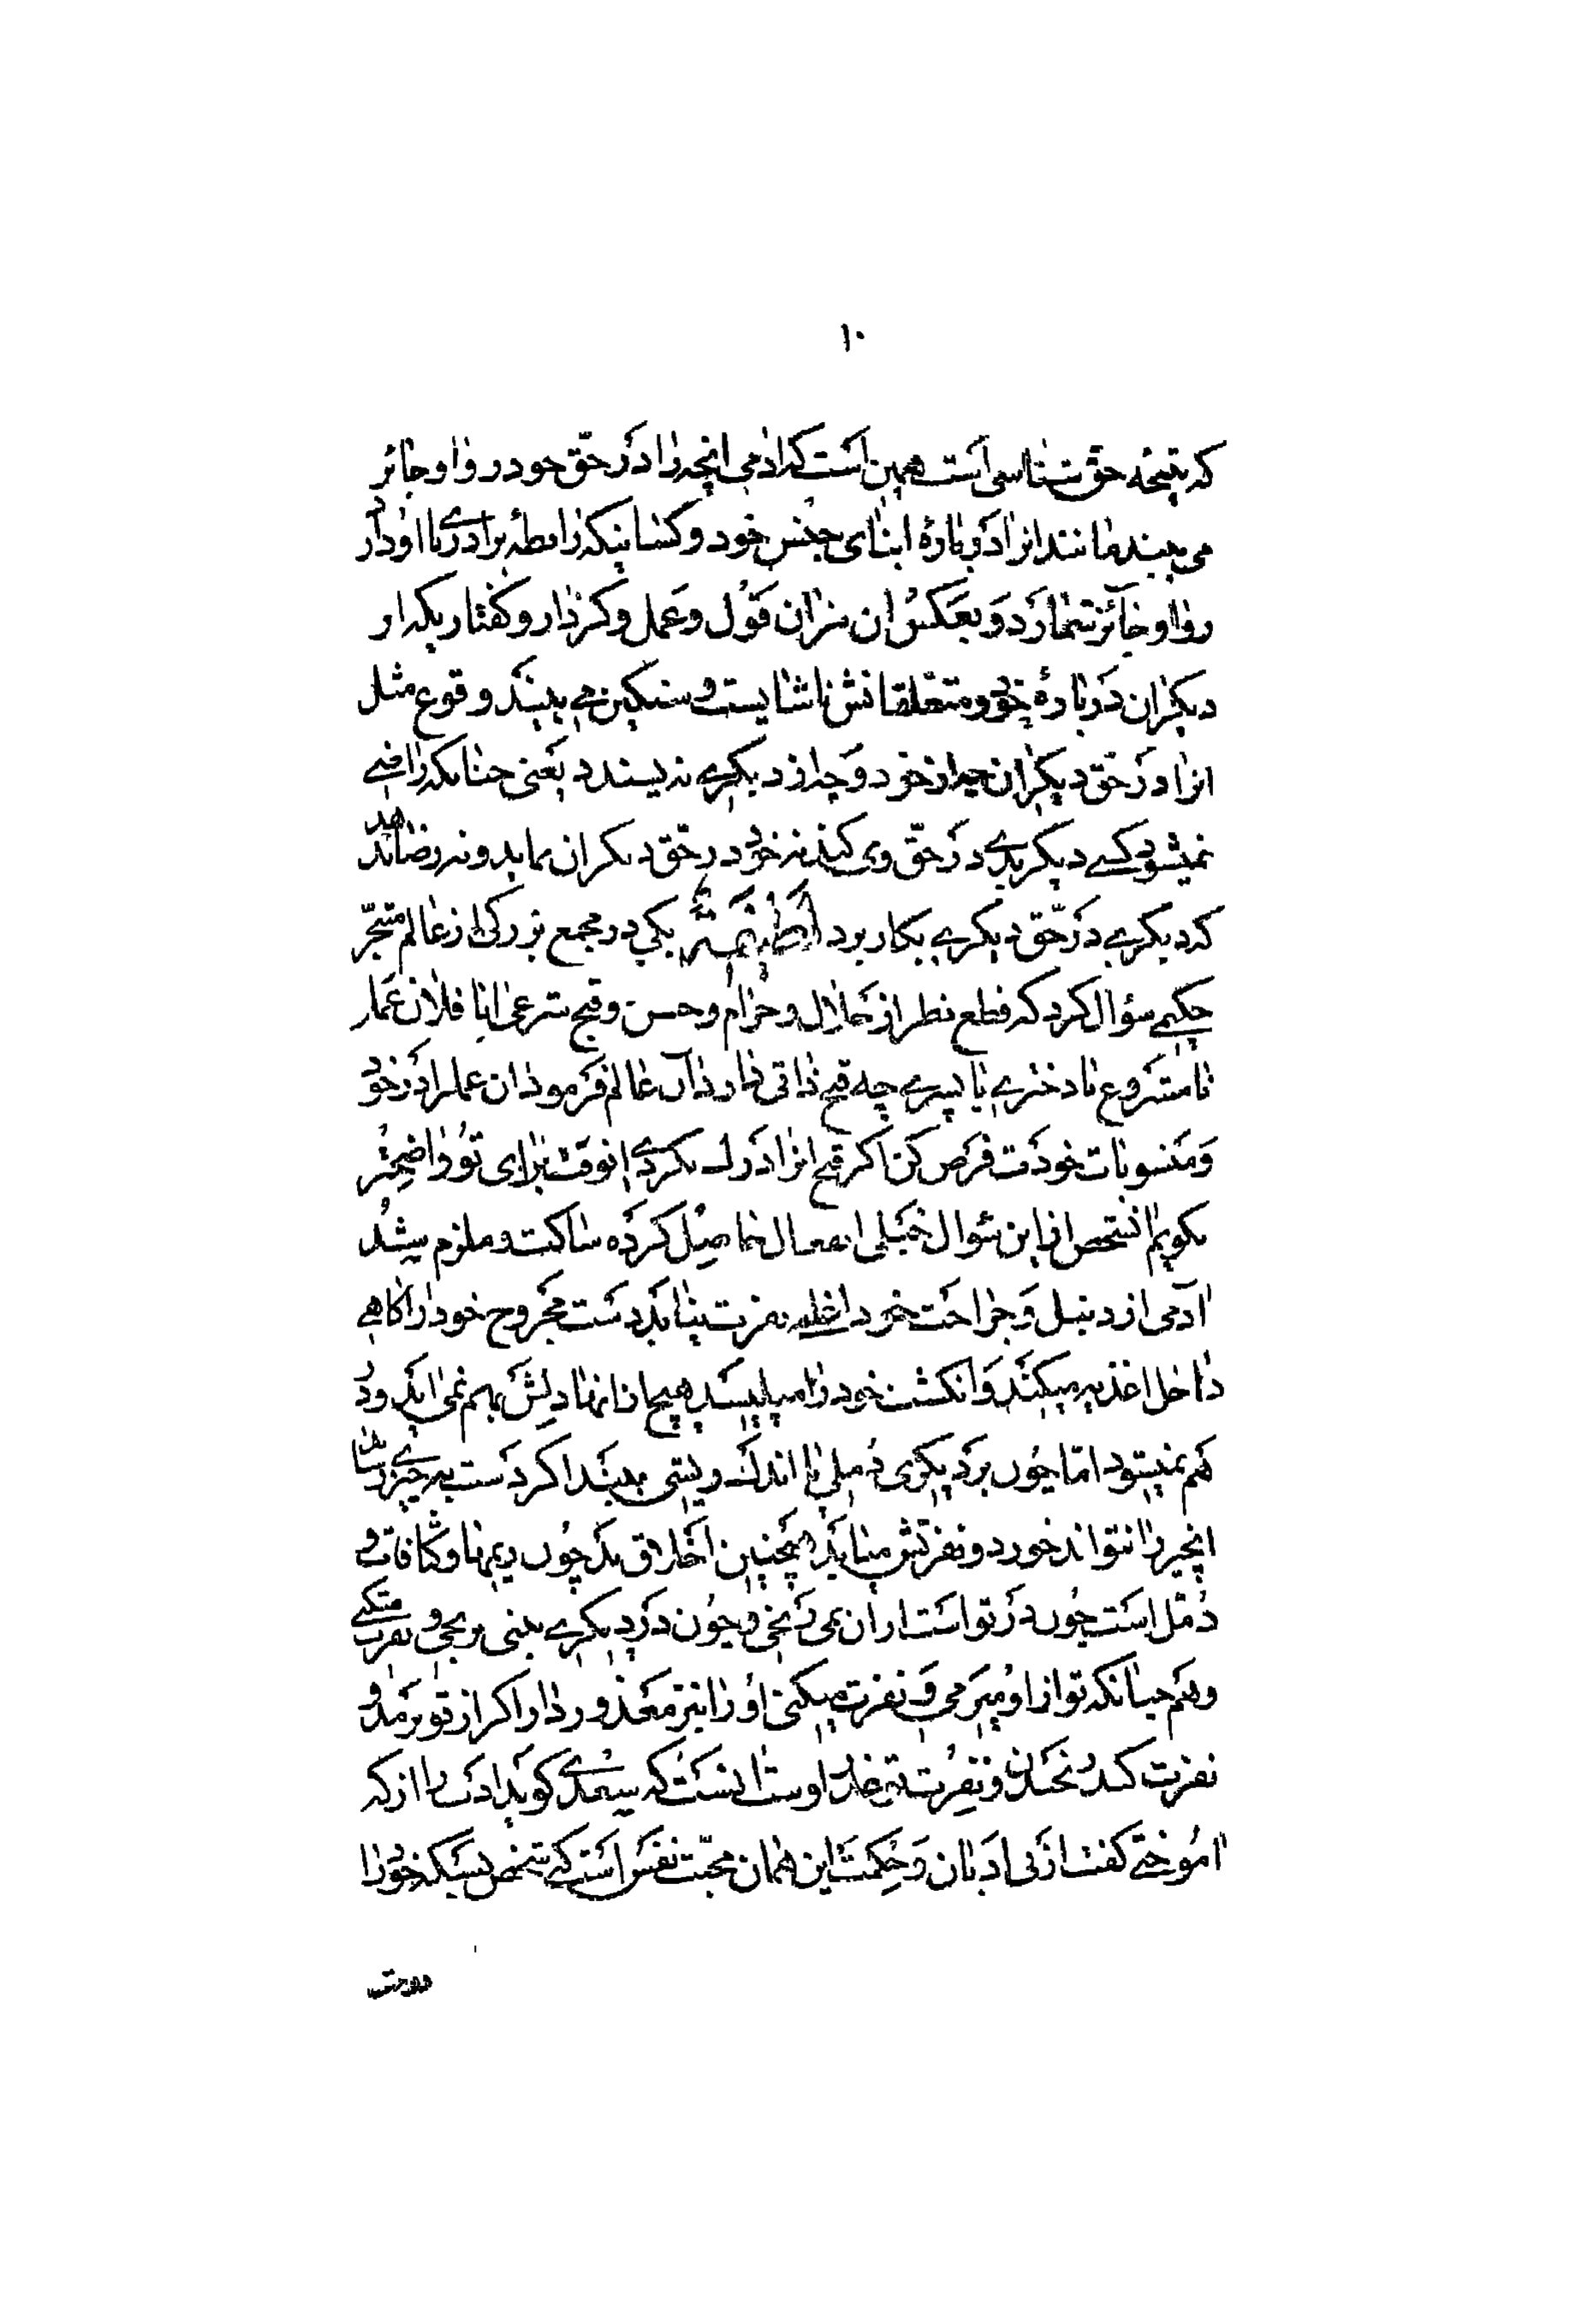 ۱۰
که نتیجه حق شناسی است همین است که ادمی انچه را در حق خود روا و جائز
می بیند مانند انرا در بارهٔ ابنای جنس خود و کسانیکه رابطهٔ برادری با او دارد
روا و جائز شمارد و بعکس ان هران قول و عمل و کردار و گفتاریکه از
دیکران در بارهٔ خود و متعلقانش ناشایست و سنکین می بیند وقوع مثل
انرا در حق دیکران چه از خود و چه از دیکری نپسندد یعنی چنانکه راضی
نمیشود کسی دیکر بدی در حق وی کند نه خود در حق دیکران نماید و نه رضا دهد
که دیکری در حق دیکری بکار برد لطیفه یکی در مجمع بزرکی از عالم متبحر
حکیمی سؤال کرد که قطع نظر از حلال و حرام و حسن و قبح شرعی ایا فلان عمل
نامشروع با دختری یا پسری چه قبح ذاتی دارد آن عالم فرمود ان عمل را در خود
و منسوبات خودت فرض کن اکر قبح انرا درک نکردی انوقت برای تو واضح تر
بکویم انشخص از این سؤال خیلی انفعال حاصل کرده ساکت و ملزم میشد
آدمی از دنبل و جراحت خود نفرت ننماید دست مجروح خود را کاهی
داخل اغذیه میکند و انکشت خود را میلیسد هیچ از انها دلش بهم نمی اید و رد
هم نمیشود اما چون بر دیکری دملی یا اندک ریشی بیند اکر دست به چیزی رساند
انچیز را نتواند خورد و نفرتش مینماید همچنین اخلاق بد چون ریمها و کثافات و
دمل است چون در تو است از ان نمی رنجی و چون در دیکری بینی برنجی و نفرت میکنی
و هم چنانکه تو از او میرمی و نفرت میکنی او را نیز معذور دار اکر از تو برمد و
نفرت کند رنجیدن و نفرت تو عذر اوست اینست که سعدی کوید ادب را از که
اموختی کفت از بی ادبان و حکمت این همان محبت نفس است که شخص بسکه خود را
دوست